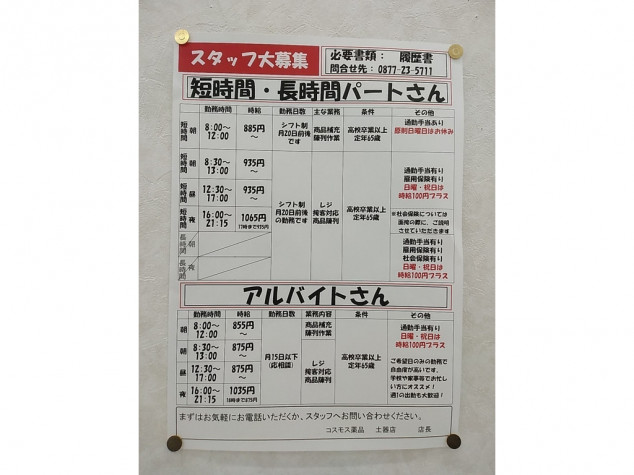 スタッフ大募集
必要書類： 履歴書
問合せ先： 0877-23-5711
短時間・長時間パートさん
勤務時間 時給 勤務日数 主な業務 条件 その他
短時間 朝 8:00～12:00 885円～ シフト制 月20日前後です 商品補充 陳列作業 高校卒業以上 定年65歳 通勤手当あり 原則日曜日はお休み
短時間 8:30～13:00 935円～
短時間 昼 12:30～17:00 935円～
短時間 夜 16:00～21:15 1065円 17時まで935円
シフト制 月20日前後の勤務です レジ 接客対応 商品陳列 高校卒業以上 定年65歳
通勤手当有り
雇用保険有り
日曜・祝日は
時給100円プラス
※社会保険については
面接の際に、ご説明
させていただきます
長時間 朝
長時間 夜
通勤手当有り
雇用保険有り
社会保険有り
日曜・祝日は
時給100円プラス
アルバイトさん
勤務時間 時給 勤務日数 業務内容 条件 その他
朝 8:00～12:00 855円～ 商品補充 陳列作業
朝 8:30～13:00 875円～
昼 12:30～17:00 875円～
夜 16:00～21:15 1035円
月15日以下 (応相談)
レジ 接客対応 商品陳列
高校卒業以上 定年65歳
通勤手当有り
日曜・祝日は
時給100円プラス
ご希望日のみの勤務で
自由度が高いです。
学校や家事等でお忙し
い方にオススメ！
週1の出勤も大歓迎！
まずはお気軽にお電話いただくか、スタッフへお問い合わせください。
コスモス薬品 土器店 店長